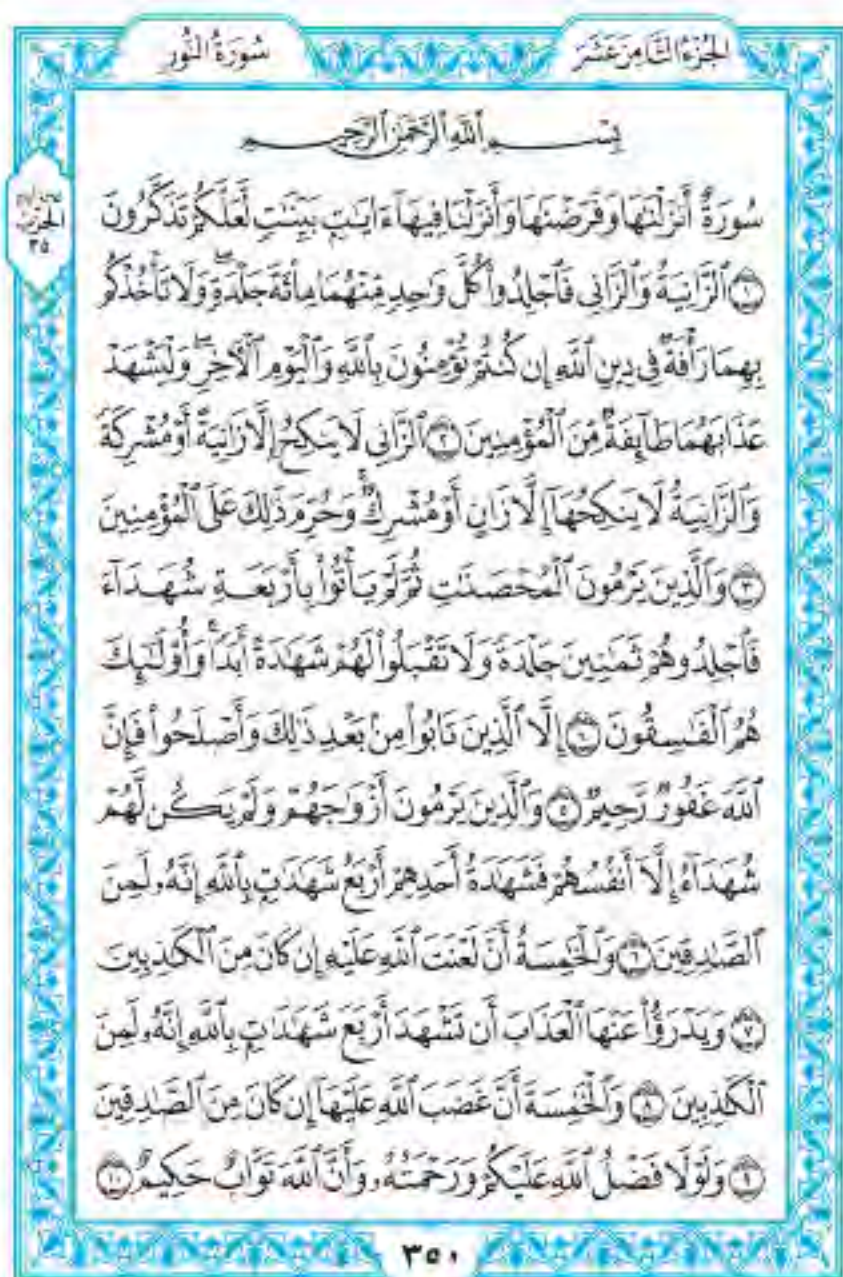 الجزء الثامن عشر
سورة النور
بِسْمِ ٱللَّهِ ٱلرَّحْمَٰنِ ٱلرَّحِيمِ
الحزب
٣٥
سُورَةٌ أَنزَلْنَٰهَا وَفَرَضْنَٰهَا وَأَنزَلْنَا فِيهَآ ءَايَٰتٍۭ بَيِّنَٰتٍ لَّعَلَّكُمْ تَذَكَّرُونَ
١ ٱلزَّانِيَةُ وَٱلزَّانِى فَٱجْلِدُوا۟ كُلَّ وَٰحِدٍ مِّنْهُمَا مِا۟ئَةَ جَلْدَةٍۖ وَلَا تَأْخُذْكُم
بِهِمَا رَأْفَةٌ فِى دِينِ ٱللَّهِ إِن كُنتُمْ تُؤْمِنُونَ بِٱللَّهِ وَٱلْيَوْمِ ٱلْءَاخِرِۖ وَلْيَشْهَدْ
عَذَابَهُمَا طَآئِفَةٌ مِّنَ ٱلْمُؤْمِنِينَ ٢ ٱلزَّانِى لَا يَنكِحُ إِلَّا زَانِيَةً أَوْ مُشْرِكَةً
وَٱلزَّانِيَةُ لَا يَنكِحُهَآ إِلَّا زَانٍ أَوْ مُشْرِكٌۚ وَحُرِّمَ ذَٰلِكَ عَلَى ٱلْمُؤْمِنِينَ
٣ وَٱلَّذِينَ يَرْمُونَ ٱلْمُحْصَنَٰتِ ثُمَّ لَمْ يَأْتُوا۟ بِأَرْبَعَةِ شُهَدَآءَ
فَٱجْلِدُوهُمْ ثَمَٰنِينَ جَلْدَةً وَلَا تَقْبَلُوا۟ لَهُمْ شَهَٰدَةً أَبَدًاۚ وَأُو۟لَٰٓئِكَ
هُمُ ٱلْفَٰسِقُونَ ٤ إِلَّا ٱلَّذِينَ تَابُوا۟ مِنۢ بَعْدِ ذَٰلِكَ وَأَصْلَحُوا۟ فَإِنَّ
ٱللَّهَ غَفُورٌ رَّحِيمٌ ٥ وَٱلَّذِينَ يَرْمُونَ أَزْوَٰجَهُمْ وَلَمْ يَكُن لَّهُمْ
شُهَدَآءُ إِلَّآ أَنفُسُهُمْ فَشَهَٰدَةُ أَحَدِهِمْ أَرْبَعُ شَهَٰدَٰتٍۭ بِٱللَّهِ إِنَّهُۥ لَمِنَ
ٱلصَّٰدِقِينَ ٦ وَٱلْخَٰمِسَةُ أَنَّ لَعْنَتَ ٱللَّهِ عَلَيْهِ إِن كَانَ مِنَ ٱلْكَٰذِبِينَ
٧ وَيَدْرَؤُا۟ عَنْهَا ٱلْعَذَابَ أَن تَشْهَدَ أَرْبَعَ شَهَٰدَٰتٍۭ بِٱللَّهِ إِنَّهُۥ لَمِنَ
ٱلْكَٰذِبِينَ ٨ وَٱلْخَٰمِسَةَ أَنَّ غَضَبَ ٱللَّهِ عَلَيْهَآ إِن كَانَ مِنَ ٱلصَّٰدِقِينَ
٩ وَلَوْلَا فَضْلُ ٱللَّهِ عَلَيْكُمْ وَرَحْمَتُهُۥ وَأَنَّ ٱللَّهَ تَوَّابٌ حَكِيمٌ ١٠
٣٥٠